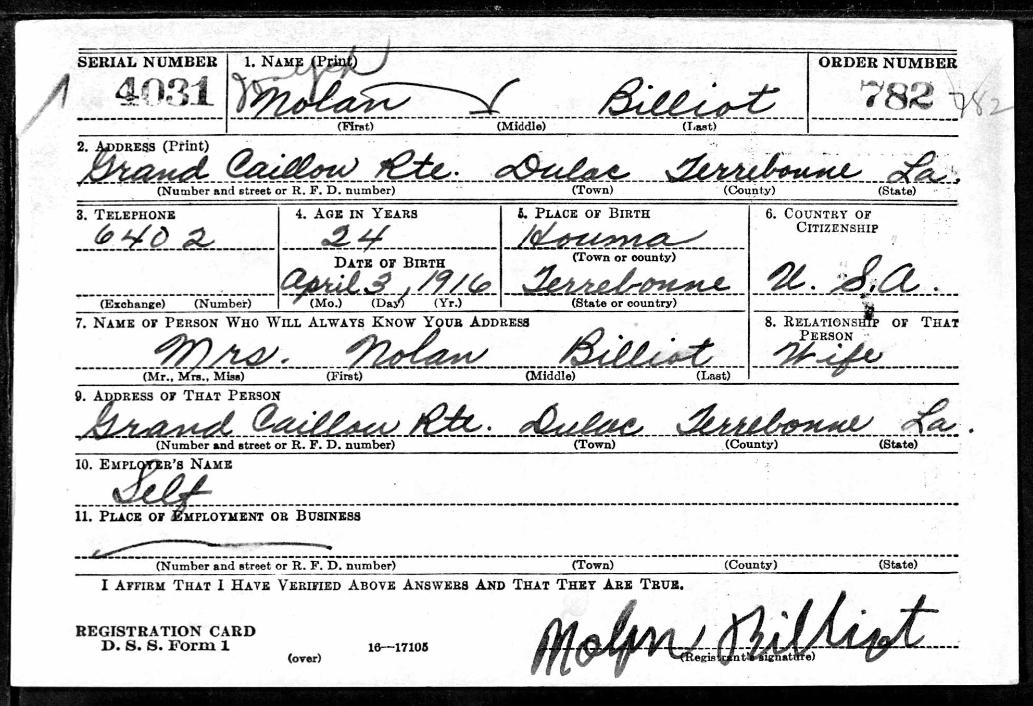 SERIAL NUMBER 1. NAME (Print) ORDER NUMBER
Joseph
4031 Nolan Billiot 782 782
(First) (Middle) (Last)
2. ADDRESS (Print)
Grand Caillou Rte. Dulac Terrebonne La.
(Number and street or R. F. D. number) (Town) (County) (State)
3. TELEPHONE 4. AGE IN YEARS 5. PLACE OF BIRTH 6. COUNTRY OF CITIZENSHIP
6402 24 Houma
(Town or county)
DATE OF BIRTH
April 3, 1916 Terrebonne U. S. A.
(Exchange) (Number) (Mo.) (Day) (Yr.) (State or country)
7. NAME OF PERSON WHO WILL ALWAYS KNOW YOUR ADDRESS 8. RELATIONSHIP OF THAT PERSON
Mrs. Nolan Billiot Wife
(Mr., Mrs., Miss) (First) (Middle) (Last)
9. ADDRESS OF THAT PERSON
Grand Caillou Rte. Dulac Terrebonne La.
(Number and street or R. F. D. number) (Town) (County) (State)
10. EMPLOYER'S NAME
Self
11. PLACE OF EMPLOYMENT OR BUSINESS
(Number and street or R. F. D. number) (Town) (County) (State)
I AFFIRM THAT I HAVE VERIFIED ABOVE ANSWERS AND THAT THEY ARE TRUE.
REGISTRATION CARD
D. S. S. Form 1 (over) 16—17105 Billiot
(Registrant's signature)